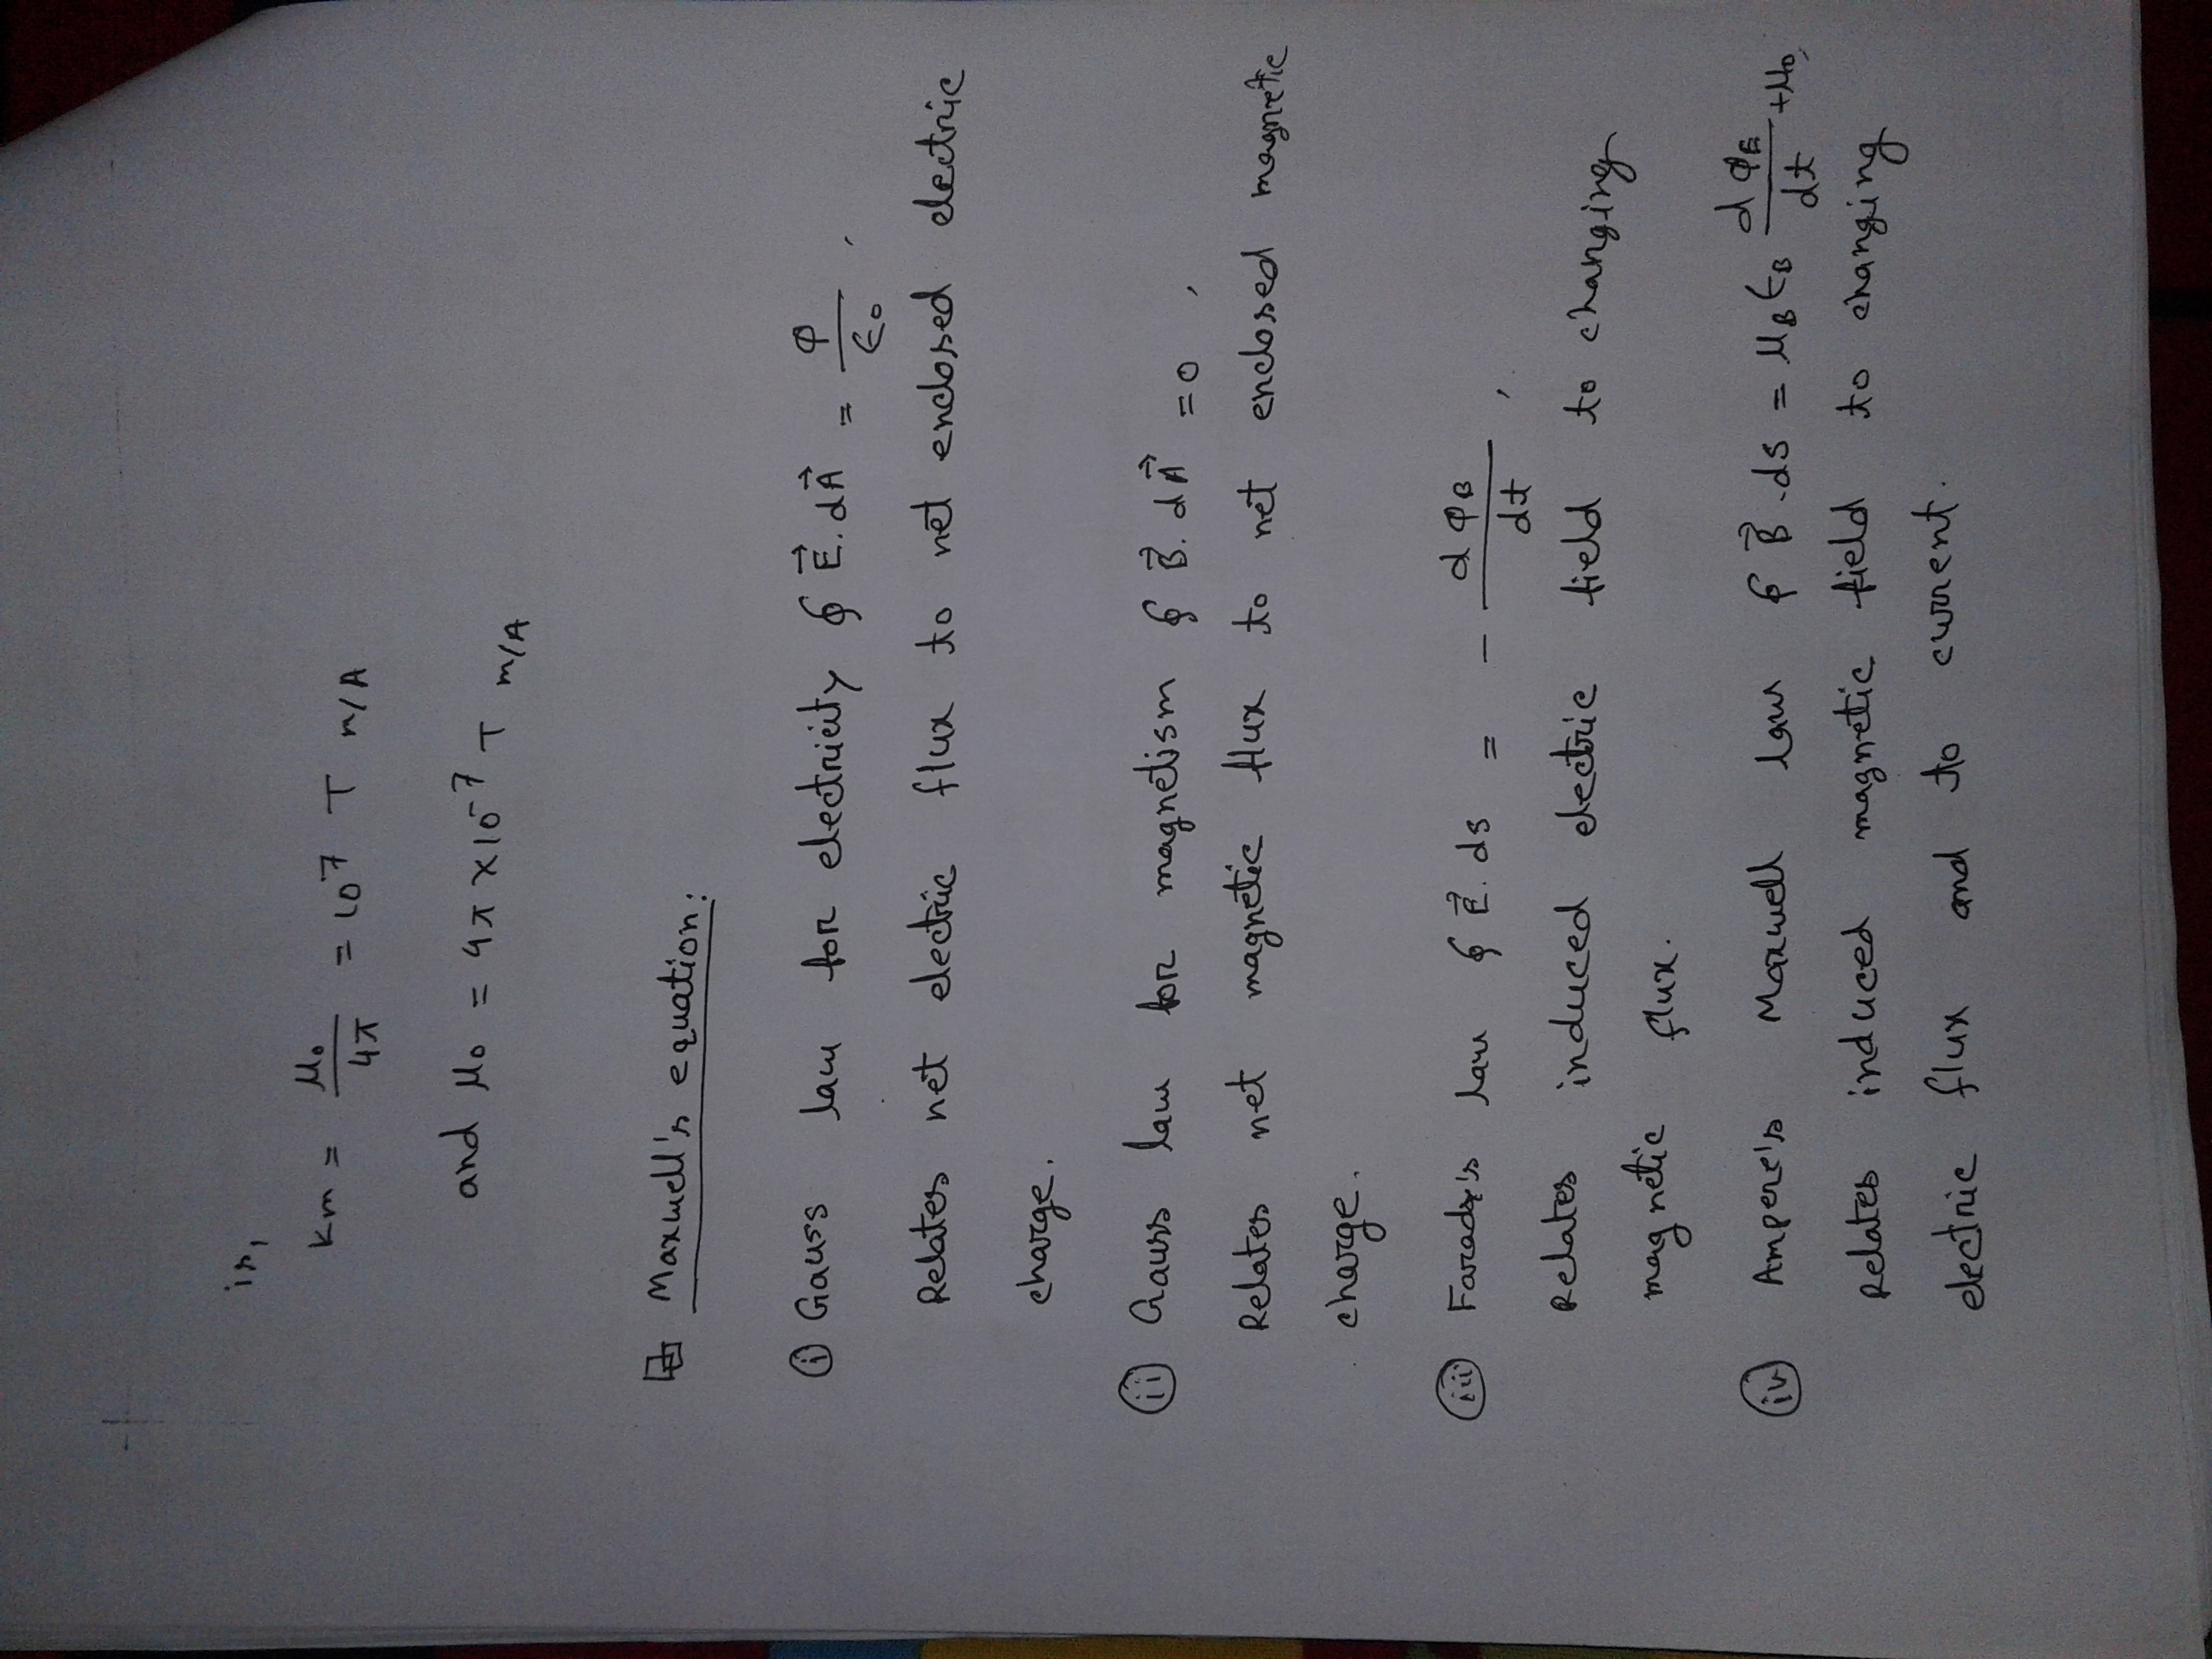 is,
Km = μ₀/4π = 10⁷ T m/A
and μ₀ = 4π×10⁻⁷ T m/A
Maxwell's equation:
(i) Gauss law for electricity ∮ E⃗.dA⃗ = φ/ϵ₀ ,
Relates net electric flux to net enclosed electric
charge.
(ii) Gauss law for magnetism ∮ B⃗.dA⃗ = 0 ,
Relates net magnetic flux to net enclosed magnetic
charge.
(iii) Farady's law ∮ E⃗.ds = - dφ_B/dt ,
Relates induced electric field to changing
magnetic flux.
(iv) Ampere's Maxwell law ∮ B⃗.ds = μ_B ϵ_B dφ_E/dt + μ₀,
Relates induced magnetic field to changing
electric flux and to current.